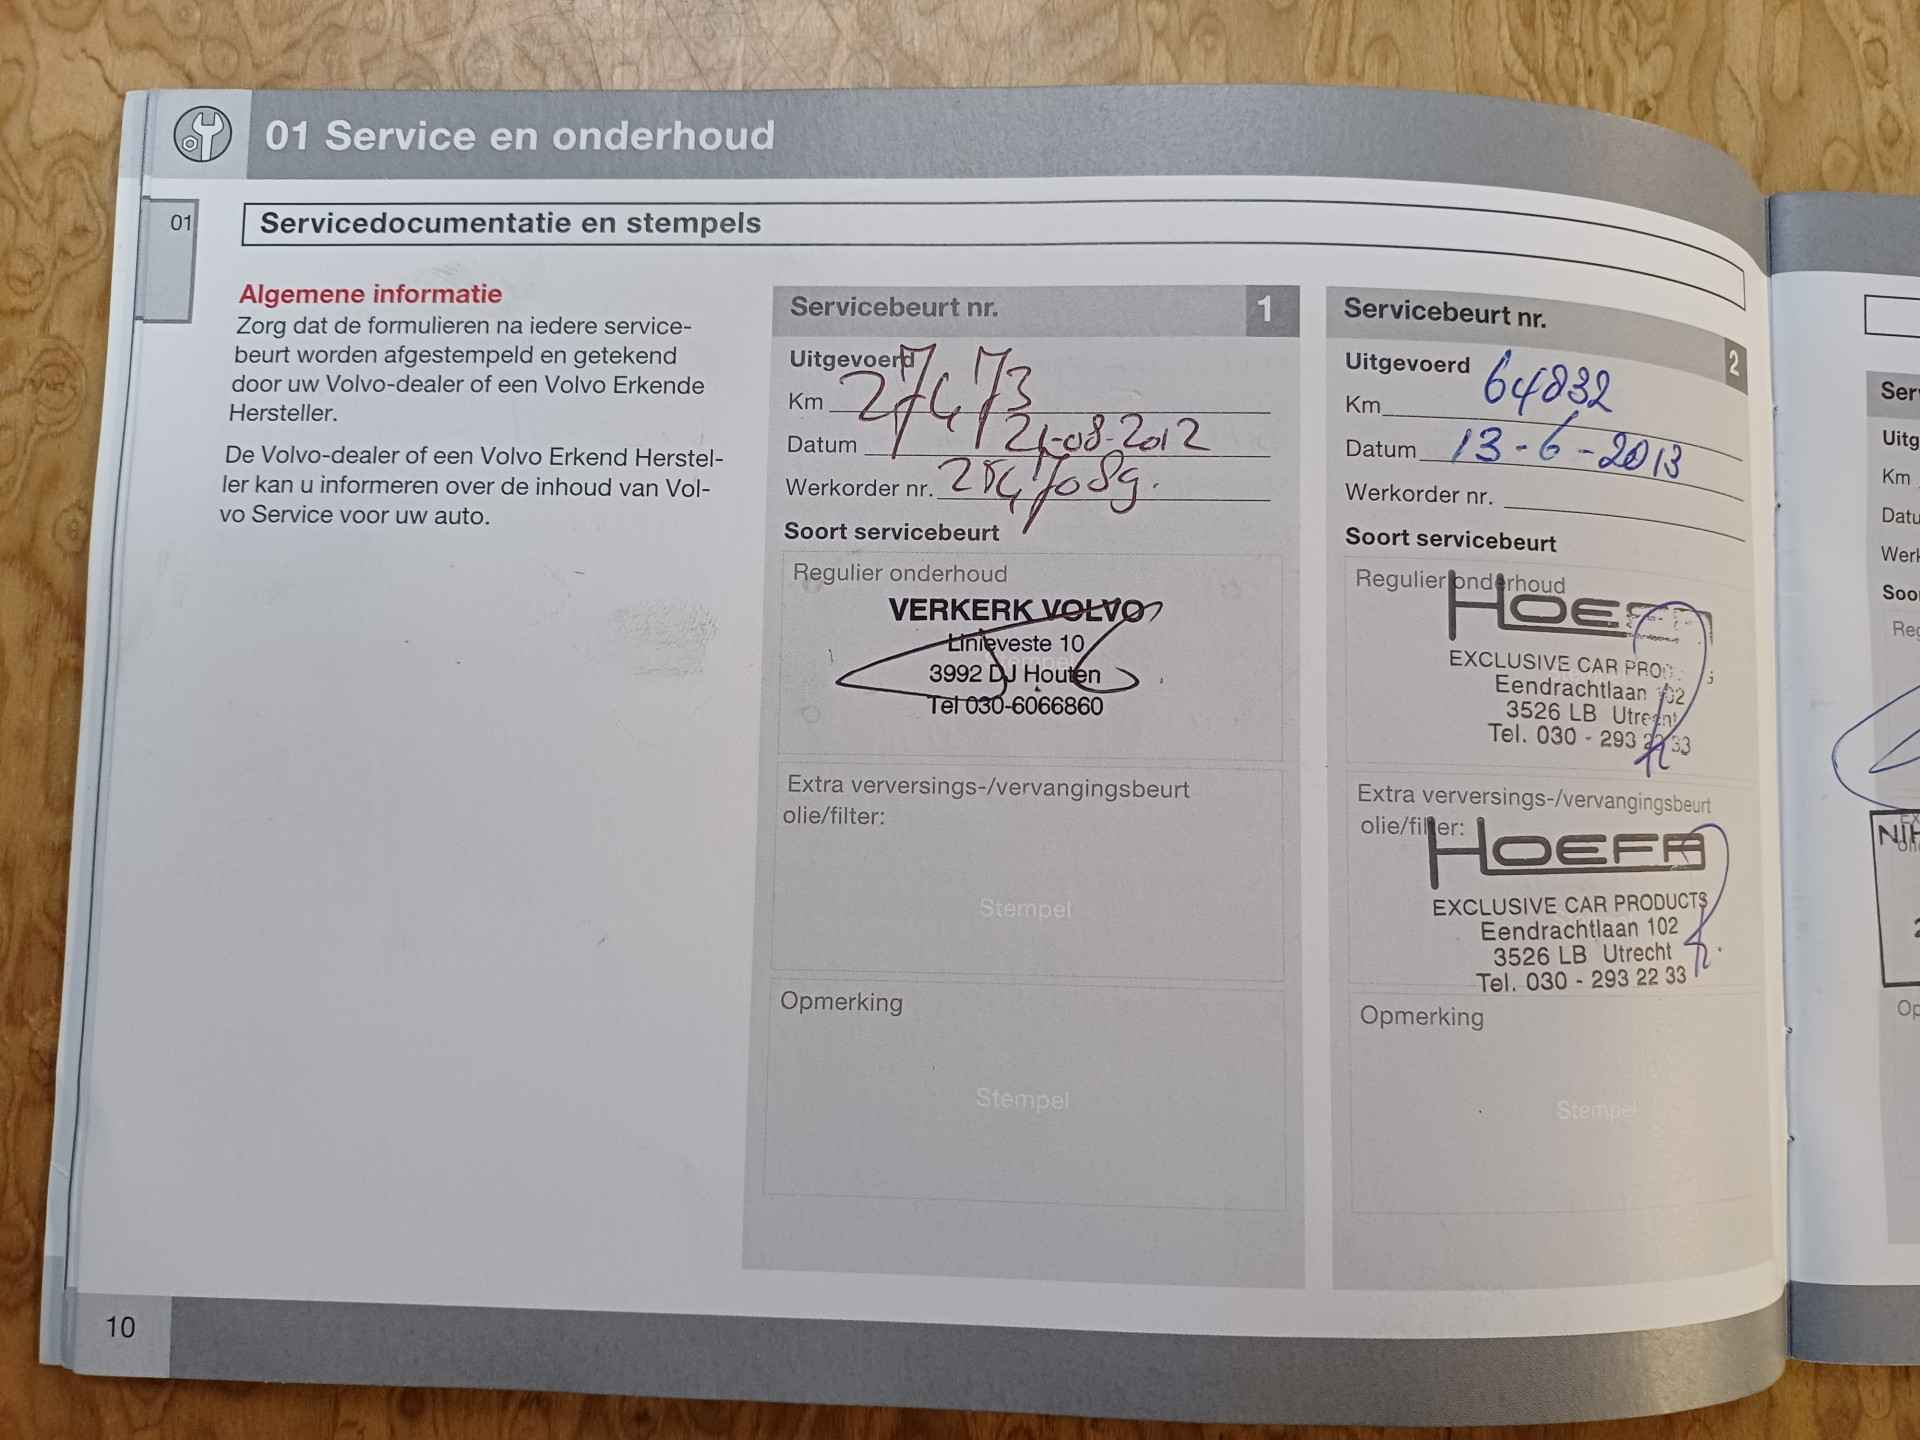 01 Service en onderhoud
01
Servicedocumentatie en stempels
Algemene informatie
Zorg dat de formulieren na iedere service-
beurt worden afgestempeld en getekend
door uw Volvo-dealer of een Volvo Erkende
Hersteller.
De Volvo-dealer of een Volvo Erkend Herstel-
ler kan u informeren over de inhoud van Vol-
vo Service voor uw auto.
Servicebeurt nr. 1
Uitgevoerd
Km 27473
Datum 21-08-2012
Werkorder nr.
Soort servicebeurt
Regulier onderhoud
VERKERK VOLVO
Linieveste 10
3992 DJ Houten
Tel 030-6066860
Extra verversings-/vervangingsbeurt
olie/filter:
Stempel
Opmerking
Stempel
Servicebeurt nr. 2
Uitgevoerd
Km 64832
Datum 13-6-2013
Werkorder nr.
Soort servicebeurt
Regulier onderhoud
HOEFA
EXCLUSIVE CAR PRODUCTS
Eendrachtlaan 102
3526 LB Utrecht
Tel. 030 - 293 22 33
Extra verversings-/vervangingsbeurt
olie/filter:
HOEFA
EXCLUSIVE CAR PRODUCTS
Eendrachtlaan 102
3526 LB Utrecht
Tel. 030 - 293 22 33
Opmerking
Stempel
Ser
Uitg
Km
Datu
Werk
Soor
Reg
NIH
2
Op
10